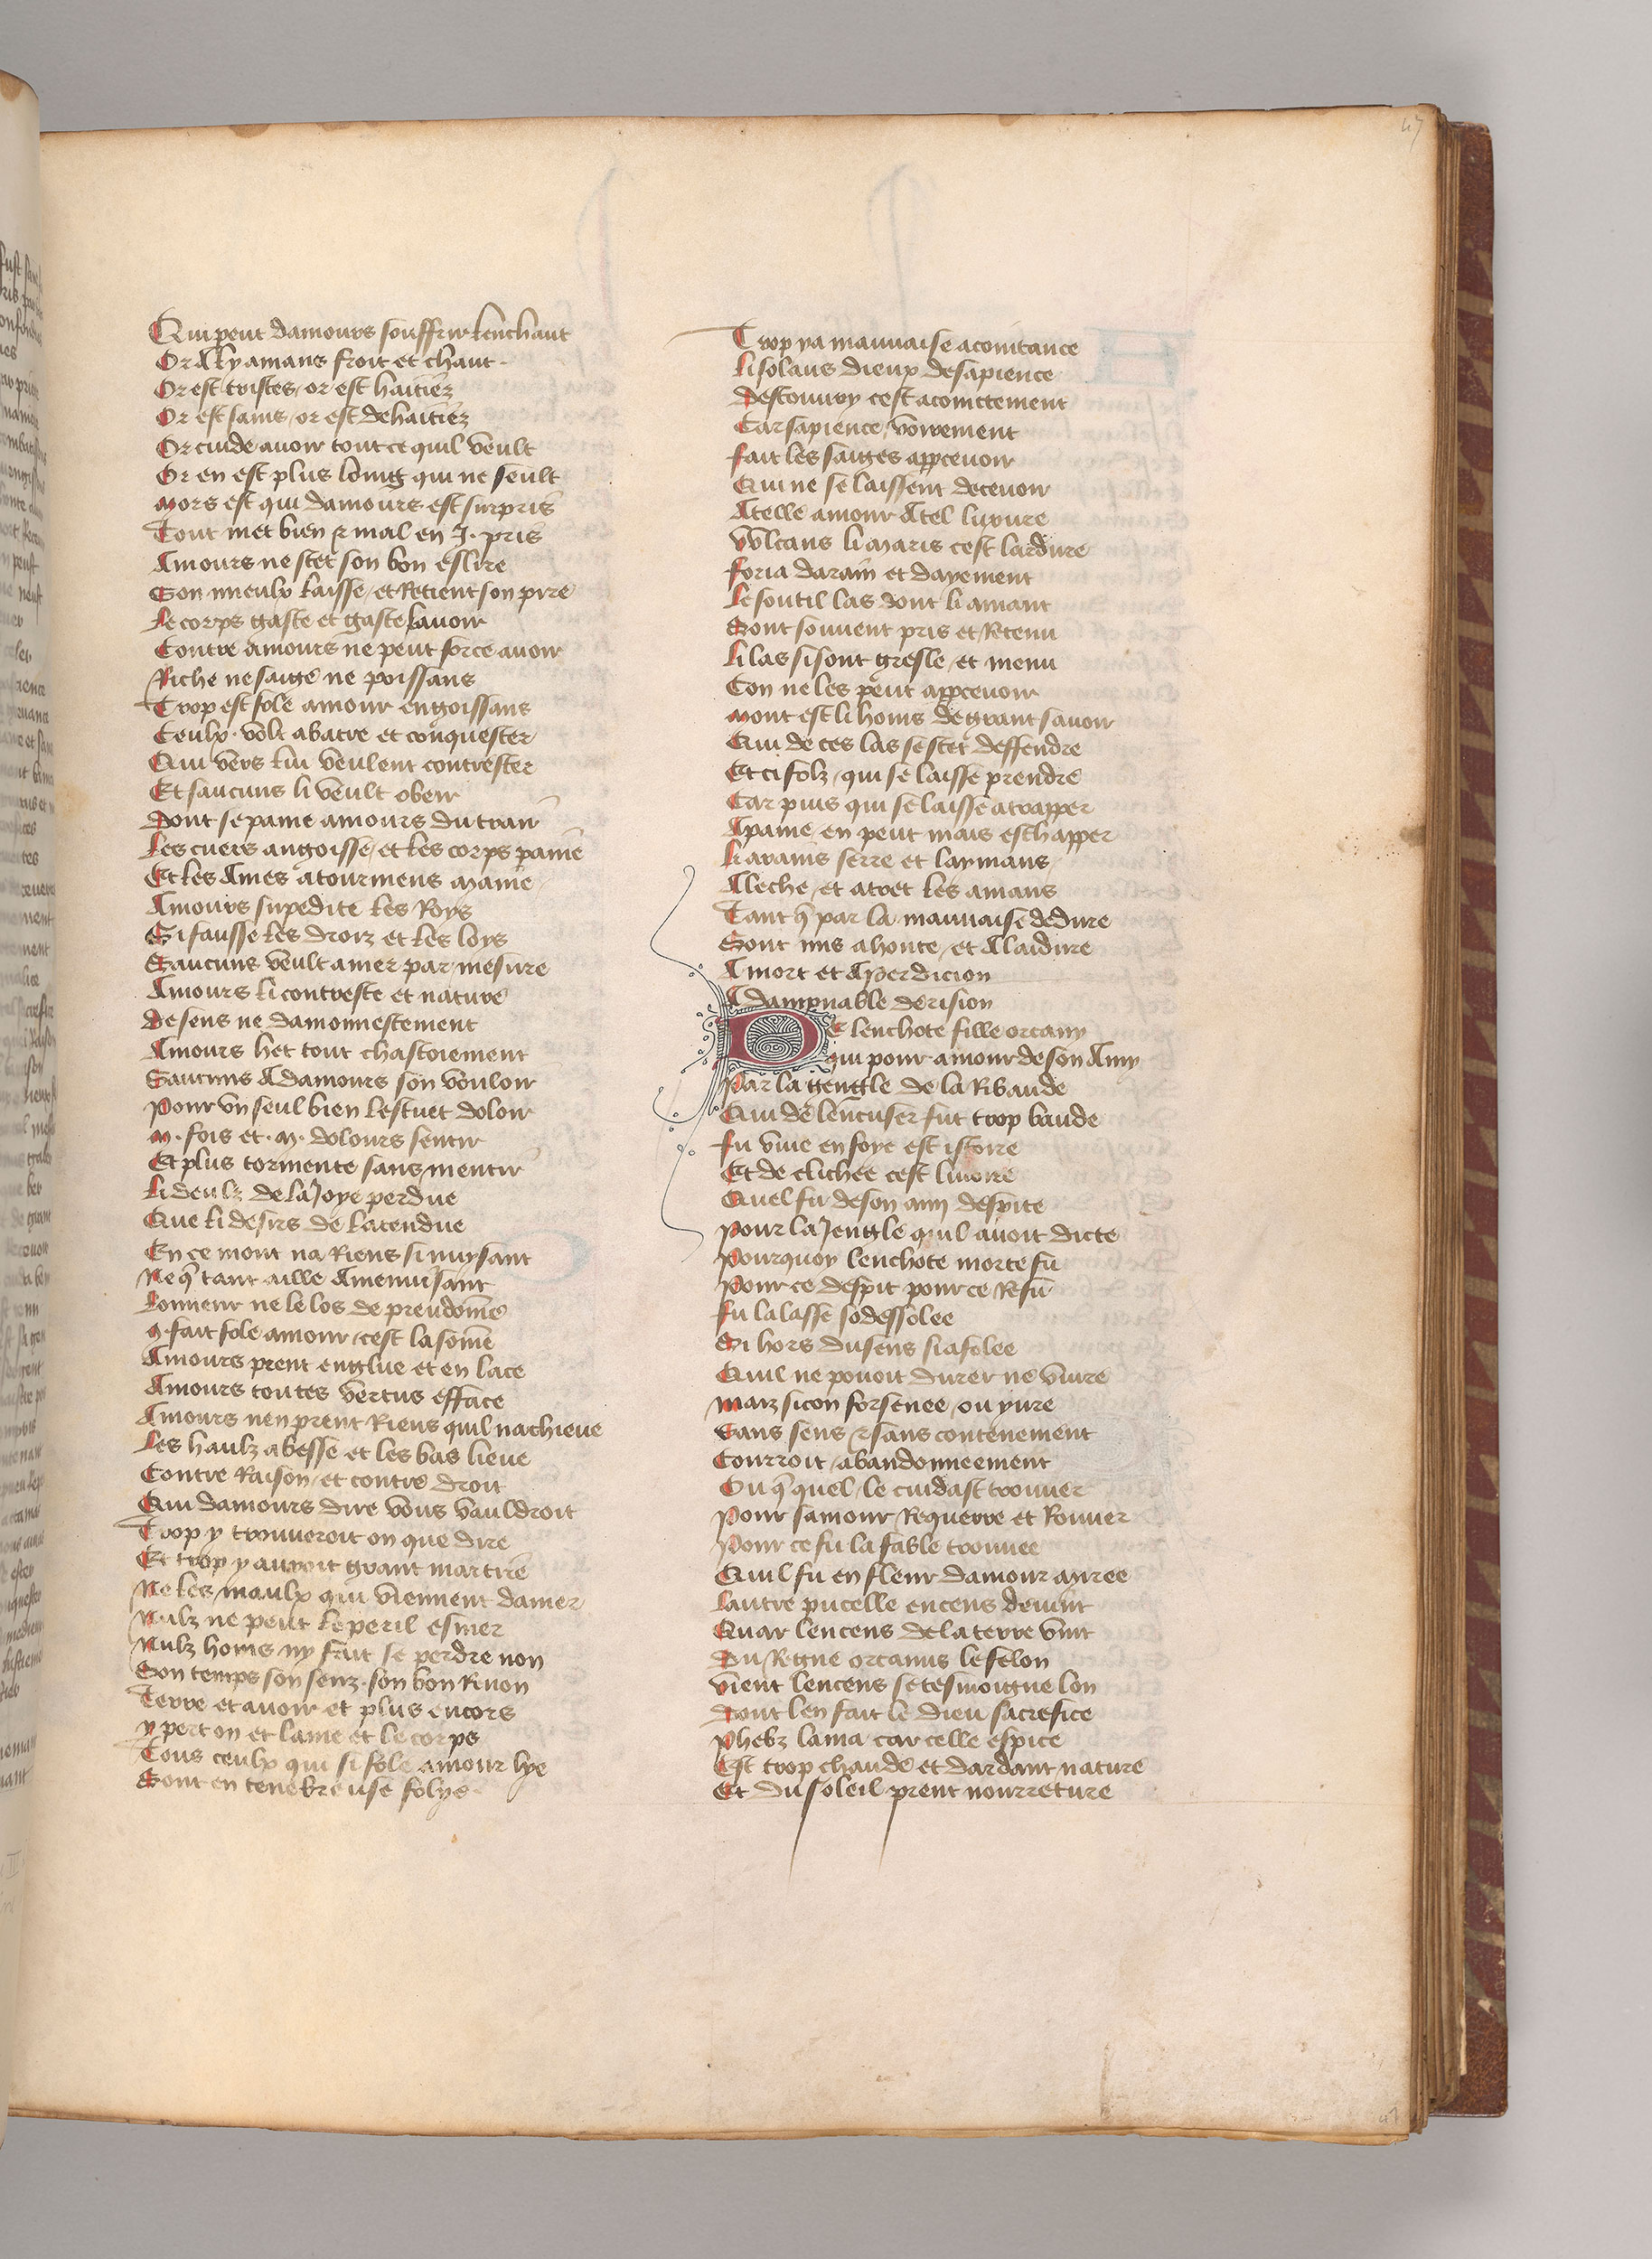 47
Qui peut damours souffrir lenchaut
Or a ly amans froit et chaut
Or est tristes / or est haitiez
Or est sains / or est dehaitiez
Or cuide avoir tout ce quil veult
Or en est plus loing qui ne seult
Mors est qui damours est surpris
Tout met bien & mal en .J. pris
Amours ne scet son bon eslire
Son mieulx laisse / et Retient son pire
Le corps gaste et gaste lavoir
Contre amours ne peut force avoir
Riche ne saige ne poissans
Trop est fole amour engoissans
Ceulx volt abatre et conquester
Qui vers lui veulent contrester
Et saucuns li veult obeir
Dont se paine amours du trair
Les cuers angoisse / et les corps paine
Et les Ames a tourmens maine
Amours supedite les Roys
Si fausse les droiz et les loys
Saucuns veult amer par mesure
Amours li contreste et nature
De sens ne damonnestement
Amours het tout chastoiement
Saucuns A damours son vouloir
Pour vn seul bien lestuet doloir
M. fois et .M. dolours sentir
Et plus tormente sans mentir
Li deulz de la Joye perdue
Que li desirs de latendue
En ce mont na Riens si nuysant
Ne q̄ tant aille Amenuisant
Lonneur ne le los de preudom̄e
Q. fait fole amour / cest la som̄e
Amours prent englue et en lace
Amours toutes vertus efface
Amours nen prent Riens quil nachieue
Les haulz abesse et les bas lieue
Contre Raison / et contre droit
Qui damours dire vous vauldroit
Trop y trouueroit on que dire
Et trop y auroit grant martire
Ne les maulx qui viennent damer
Nulz ne peut le peril esmer
Nulz homs ny fait se perdre non
Son temps son senz . son bon Rnon
Terre et auoir et plus encors
Y pert on et lame et le corps
Tous ceulx qui si fole amour lye
Sont en tenebreuse folye.
Trop ya mauuaise acointance
Li solaus dieux de sapience
Descouury cest acointement
Car sapience / voirement
Fait les saiges apꝑceuoir
Qui ne se laissent deceuoir
A telle amour A tel luxure
Vulcans li maris cest lardure
Foria darain et dayement
Le soutil las dont li amant
Sont souuent pris et Retenu
Li las si sont gresle / et menu
Con ne les peut apꝑceuoir
Mont est li homs de grant sauoir
Qui de ces las se scet deffendre
Et ci folz / qui se laisse prendre
Car puis qui se laisse atrapper
A paine / en peut mais eschapper
Li arains serre et laymans
Aleche / et atret les amans
Tant q̄ par la mauuaise dedure
Sont mis a honte / et A laidure
A mort et A perdicion
A dampnable derision
De lenchote fille orcany
Qui pour amour de son Amy
Par la gengle de la Ribaude
Qui de lencuser fut trop baude
Fu viue enfoye est istoire
Et de clichee cest luoire
Quel fu de son amy despite
Pour la Jengle quil auoit dicte
Pourquoy lenchote morte fu
Pour ce despit pour ce Refu
Fu la lasse so dessolee
Si hors du sens si afolee
Quil ne pouoit durer ne viure
Maiz si con forsenee / ou yure
Sans sens & sans contenement
Courroit / abandonneement
Ou q̄ quel / le cuidast trouuer
Pour samour Requerre et Rouuer
Pour ce fu la fable trouuee
Quil fu en fleur damour muree
Lautre pucelle encens deuint
Quar lencens de la terre vint
Du Regne orcanus le felon
Vient lencens se tesmoigne lon
Dont len fait le dieu sacrefice
Phebz lama / car celle espice
Est trop chaude et dardant nature
Et du soleil prent nourreture